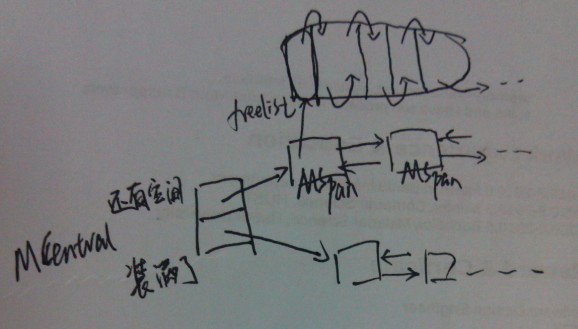 freelist
MSpan
MSpan
还有空间
MCentral
装满了